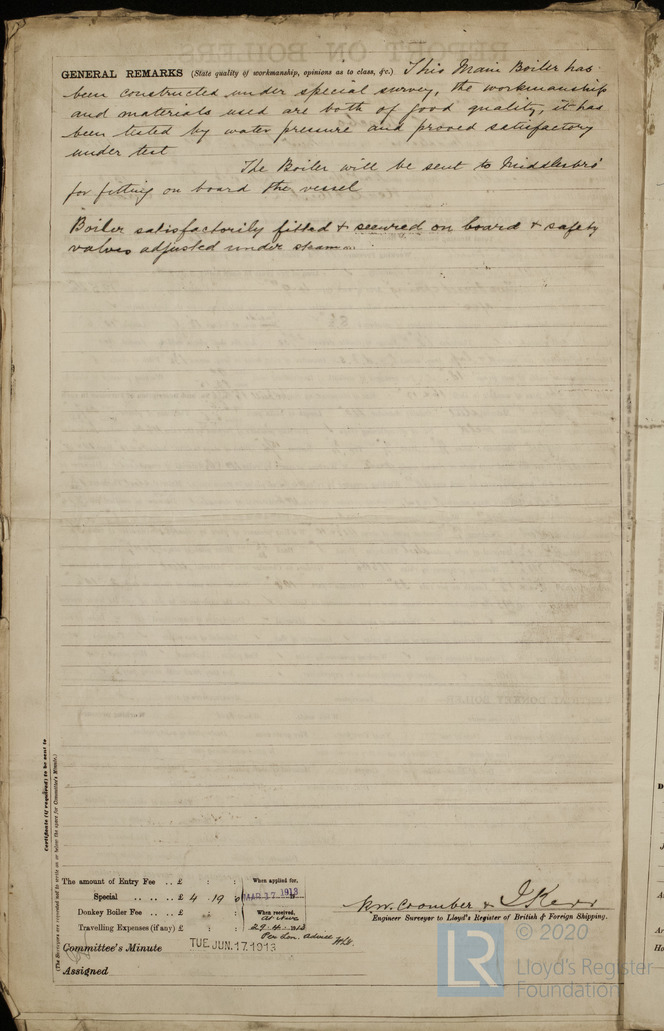 GENERAL REMARKS (State quality of workmanship, opinions as to class, &c.) This Main Boiler has
been constructed under special survey, the workmanship
and materials used are both of good quality, it has
been tested by water pressure and proved satisfactory
under test
The Boiler will be sent to Middlesbro'
for fitting on board the vessel
Boiler satisfactorily fitted & secured on board & safety
valves adjusted under steam.
Certificate (if required) to be sent to
The amount of Entry Fee .. £ : :
When applied for,
Special .. .. .. £ 4 . 19 . 0
MAR 17 1913
Donkey Boiler Fee .. £ : :
When received,
Travelling Expenses (if any) £ : :
29.4.1913
Per Lon. advice
R.W. Coomber & J Kerr
Engineer Surveyor to Lloyd's Register of British & Foreign Shipping.
Committee's Minute
TUE. JUN. 17. 1913
Assigned
LR
© 2020
Lloyd's Register
Foundation